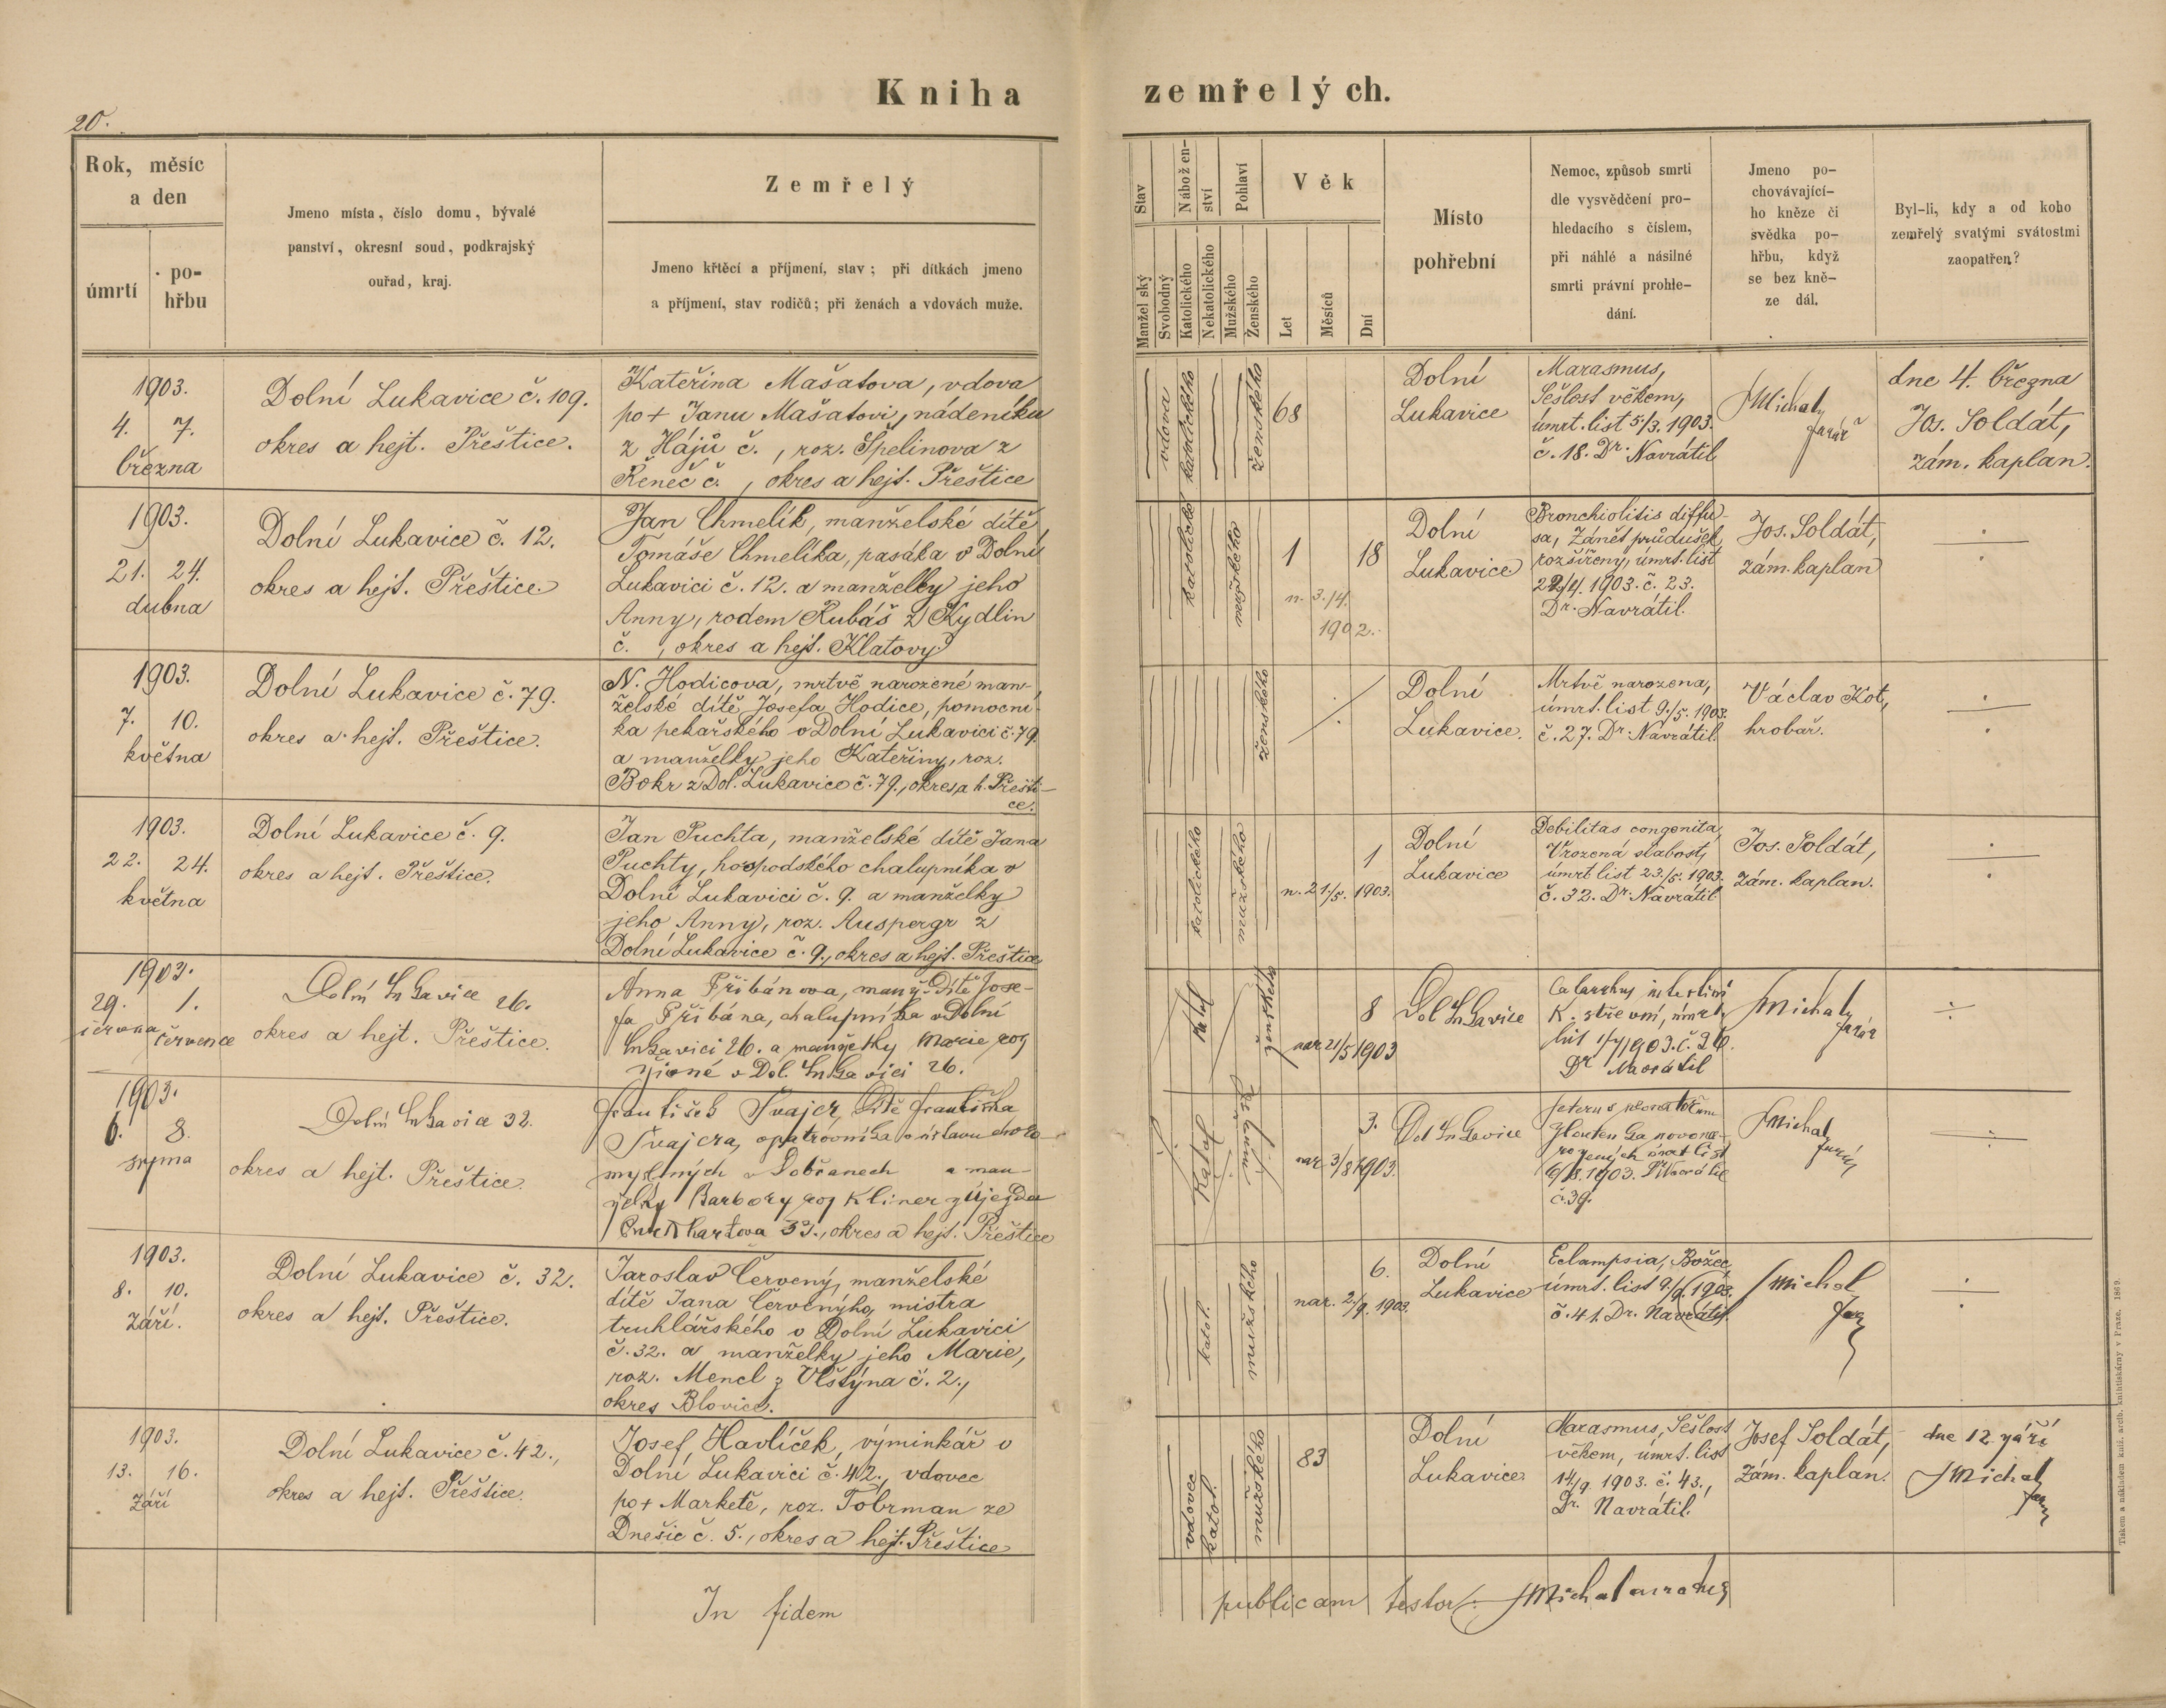 Kniha zemřelých.
20.
Rok, měsíc
a den
úmrtí
po-
hřbu
Jmeno místa, číslo domu, bývalé
panství, okresní soud, podkrajský
ouřad, kraj.
Zemřelý
Jmeno křtěcí a příjmení, stav; při dítkách jmeno
a příjmení, stav rodičů; při ženách a vdovách muže.
Stav
Manželský
Svobodný
Nábožen-
ství
Katolického
Nekatolického
Pohlaví
Mužského
Ženského
Věk
Let
Měsíců
Dní
Místo
pohřební
Nemoc, způsob smrti
dle vysvědčení pro-
hledacího s číslem,
při náhlé a násilné
smrti právní prohle-
dání.
Jmeno po-
chovávající-
ho kněze či
svědka po-
hřbu, když
se bez kně-
ze dál.
Byl-li, kdy a od koho
zemřelý svatými svátostmi
zaopatřen?
1903.
4. 7.
března
Dolní Lukavice č. 109.
okres a hejt. Přeštice.
Kateřina Mašatova, vdova
po + Janu Mašatovi, nádeníku
z Hájů č. , roz. Špelinova z
Řeneč č. , okres a hejt. Přeštice
vdova
katolického
ženského
68
Dolní
Lukavice
Marasmus,
Sešlost věkem,
úmrt. list 5/3. 1903.
č. 18. Dr. Navrátil
JMichal
farář
dne 4. března
Jos. Soldát,
zám. kaplan.
1903.
21. 24.
dubna
Dolní Lukavice č. 12.
okres a hejt. Přeštice.
Jan Chmelík, manželské dítě
Tomáše Chmelíka, pasáka v Dolní
Lukavici č. 12. a manželky jeho
Anny, rodem Kubáš z Kydlin
č. , okres a hejt. Klatovy
katolického
mužského
1 18
n. 3./4.
1902.
Dolní
Lukavice
Bronchiolitis diffu-
sa, Zánět průdušek
rozšířený, úmrt. list
22/4. 1903. č. 23.
Dr. Navrátil.
Jos. Soldát,
zám. kaplan
1903.
7. 10.
května
Dolní Lukavice č. 79.
okres a hejt. Přeštice.
N. Hodicova, mrtvě narozené man-
želské dítě Josefa Hodice, pomocní-
ka pekařského v Dolní Lukavici č. 79.
a manželky jeho Kateřiny, roz.
Bokr z Dol. Lukavice č. 79., okres a h. Přešti-
ce.
ženského
Dolní
Lukavice.
Mrtvě narozena,
úmrt. list 9./5. 1903.
č. 27. Dr. Navrátil.
Václav Kot,
hrobař.
1903.
22. 24.
května
Dolní Lukavice č. 9.
okres a hejt. Přeštice.
Jan Puchta, manželské dítě Jana
Puchty, hospodského chalupníka v
Dolní Lukavici č. 9. a manželky
jeho Anny, roz. Auspergr z
Dolní Lukavice č. 9., okres a hejt. Přeštice
katolického
mužského
1
n. 21/5. 1903.
Dolní
Lukavice
Debilitas congenita,
Vrozená slabost,
úmrt list 23./5. 1903.
č. 32. Dr. Navrátil.
Jos. Soldát,
zám. kaplan.
1903.
29. 1.
června července
Dolní Lukavice 26.
okres a hejt. Přeštice.
Anna Přibánova, manž. dítě Jose-
fa Přibána, chalupníka v Dolní
Lukavici 26. a manželky Marie roz
v Dol. Lukavici 26.
katol
ženského
8
nar. 21/5 1903
Dol Lukavice
Catarrhus intestini
K. střevní, úmrt.
list 1/7 1903. č. 36.
Dr Navrátil
JMichal
farář
1903.
6. 8.
srpna
Dolní Lukavice 32.
okres a hejt. Přeštice.
František Švajcr, dítě Františka
Švajcra, opatrovníka v ústavu choro-
myslných v Dobřanech a man-
želky Barbory roz Kliner z Újezda
33., okres a hejt. Přeštice
katol
mužské
3.
nar. 3/8 1903.
Dol Lukavice
Icterus neonatorum
žloutenka novona-
rozených úmrt list
6/8. 1903. Dr Navrátil
č. 39.
JMichal
farář
1903.
8. 10.
září.
Dolní Lukavice č. 32.
okres a hejt. Přeštice.
Jaroslav Červený, manželské
dítě Jana Červenýho, mistra
truhlářského v Dolní Lukavici
č. 32. a manželky jeho Marie,
roz. Mencl z Vlštýna č. 2.,
okres Blovice.
katol.
mužského
6.
nar. 2/9. 1903.
Dolní
Lukavice
Eclampsia, Božec,
úmrt. list 9/9. 1903.
č. 41. Dr. Navrátil.
JMichal
far
1903.
13. 16.
září
Dolní Lukavice č. 42.,
okres a hejt. Přeštice.
Josef Havlíček, výminkář v
Dolní Lukavici č. 42., vdovec
po + Marketě, roz. Tobrman ze
Dnešic č. 5., okres a hejt. Přeštice
vdovec
katol.
mužského
83
Dolní
Lukavice
Marasmus, Sešlost
věkem, úmrt. list
14/9. 1903. č. 43.,
Dr. Navrátil.
Josef Soldát,
zám. kaplan.
dne 12. září
JMichal
far
In fidem publicam testor: JMichal
Tiskem a nákladem kníž. arcib. knihtiskárny v Praze. 1869.